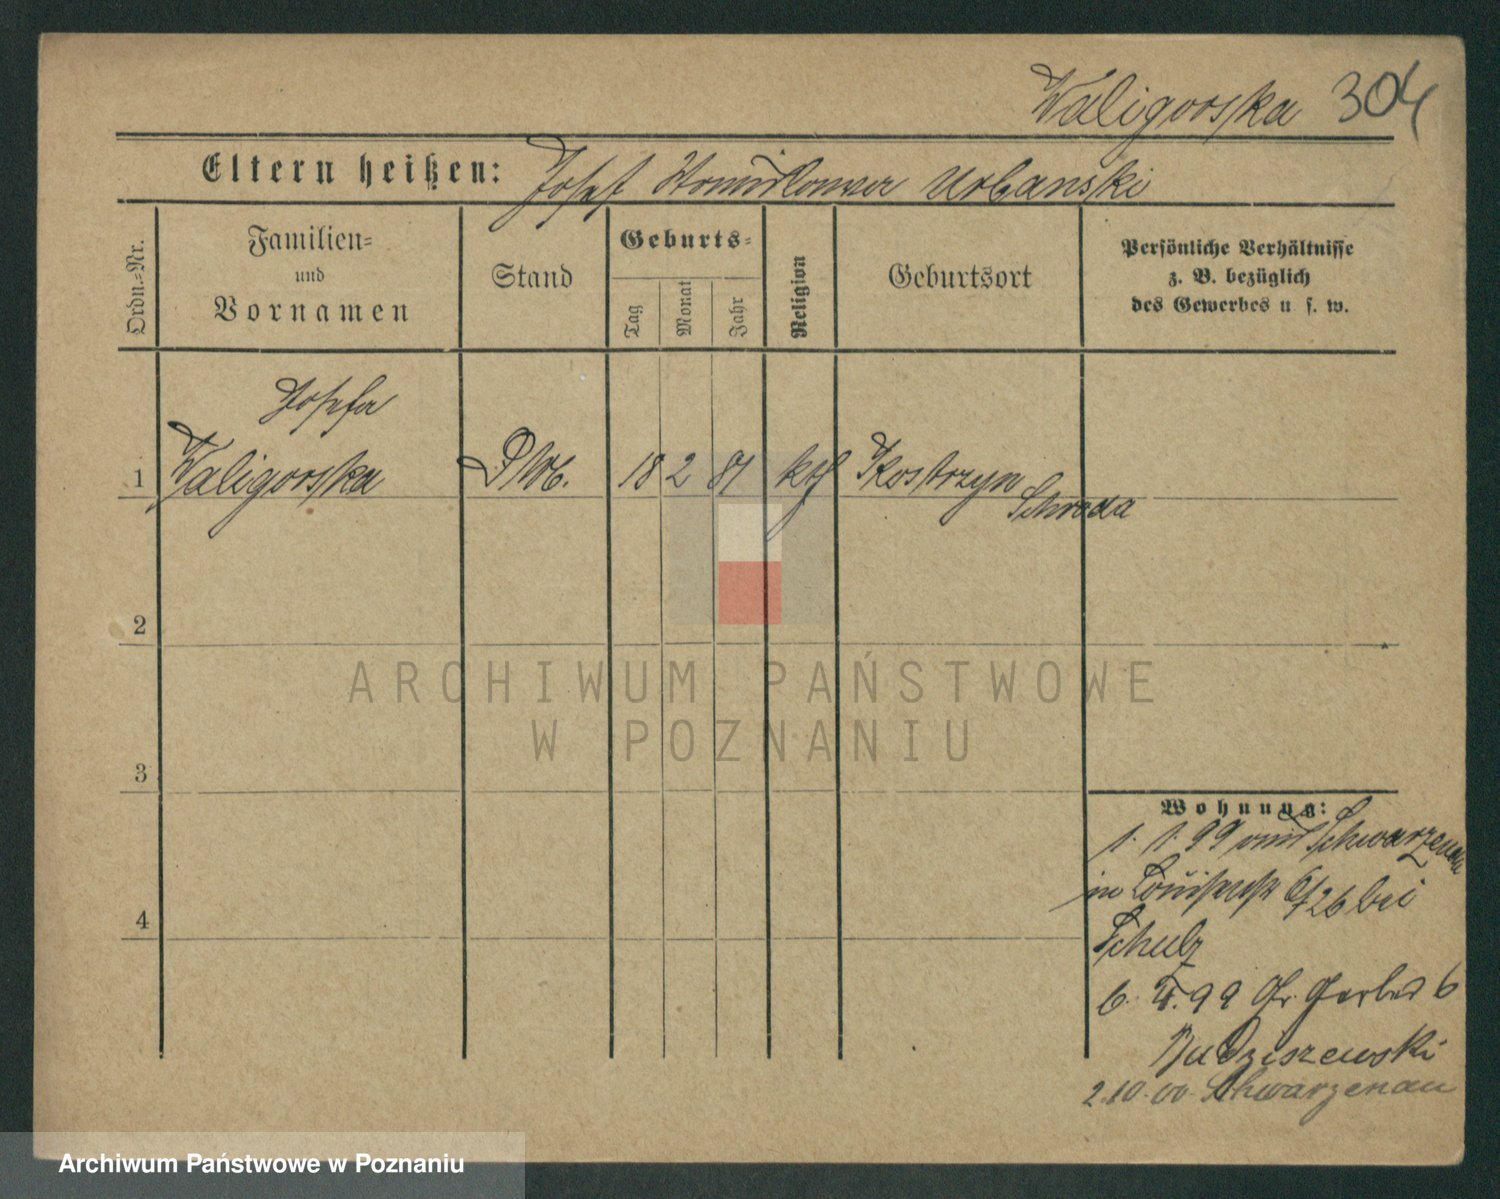 Waligorska 304
Eltern heißen: Josef Urbanski
Ordn.=Nr.
Familien=
und
Vornamen
Stand
Geburts=
Tag
Monat
Jahr
Religion
Geburtsort
Persönliche Verhältnisse
z. B. bezüglich
des Gewerbes u. s. w.
Josefa
1 Waligorska 18 2 81 kth Kostrzyn
Schroda
2
3
4
Wohnung:
1. 1. 99 von Schwarzenau
in Louisenstr 6/26 bei
Schulz
6. 4. 99 Gr. Gerber 6
Budziszewski
2.10.00. Schwarzenau
ARCHIWUM PAŃSTWOWE
W POZNANIU
Archiwum Państwowe w Poznaniu